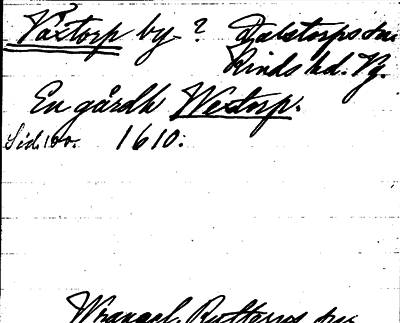 Västorp by? Dalstorps sn.
Kinds hd. Vg.
En gårdh Westorp.
Sid. 100. 1610.
Wrangel,